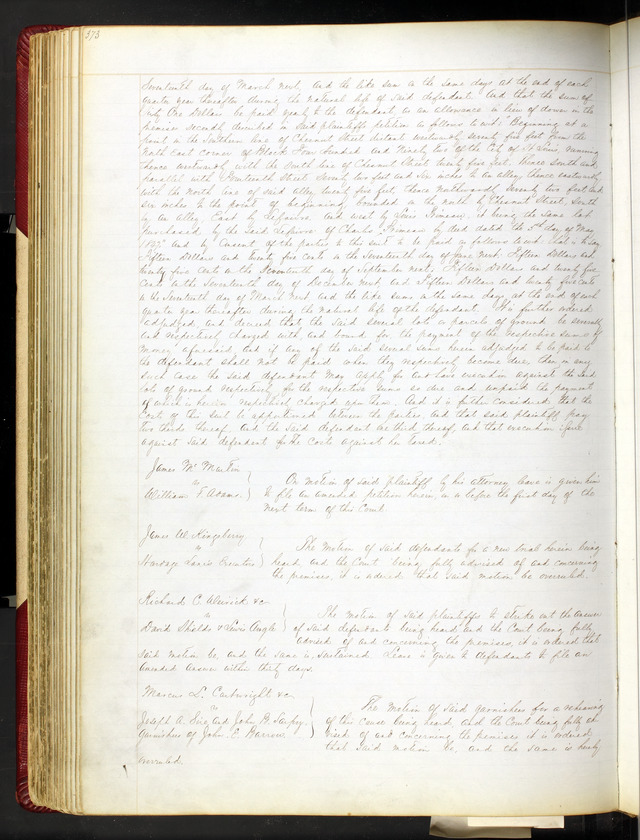 373
Seventeenth day of March next, and the like sum on the same days at the end of each
quarter year thereafter during the natural life of said defendant. And that the sum of
Sixty One Dollars be paid yearly to the defendant as an allowance in lieu of dower in the
premises secondly described in said plaintiffs petition as follows to wit: Beginning at a
point in the Southern line of Chesnut Street distant westwardly seventy five feet from the
North east corner of Block Four hundred and Ninety two of the City of St Louis running
thence westwardly with the South line of Chesnut Street twenty five feet thence South and
parallel with Seventeenth Street Seventy two feet and Six inches to an alley, thence eastwardly
with the North line of said alley twenty five feet, thence northwardly Seventy two feet and
six inches to the point of beginning, bounded on the north by Chesnut Street, South
by an Alley, East by Lefaivre, and west by Louis Primeau, it being the same lot
purchased by the said Lefaivre of Charles Primeau by deed dated the 5th day of May
and by consent of the parties to this suit to be paid as follows to wit: that is to say
Fifteen Dollars and twenty five cents on the Seventeenth day of June next. Fifteen Dollars and
twenty five cents on the Seventeenth day of September next, Fifteen Dollars and twenty five
cents on the Seventeenth day of December next and Fifteen Dollars and twenty five cents
on the Seventeenth day of March next and the like sums on the same days at the end of each
quarter year thereafter during the natural life of the defendant. It is further ordered
adjudged, and decreed that the said several lots or parcels of ground be severally
and respectively charged with and bound for the payment of the respective sums of
money aforesaid and if any of the said several sums herein adjudged to be paid to
the defendant shall not be paid when they respectively become due, then in every
such case the said defendant may apply for and have execution against the said
lots of ground respectively for the respective sums so due and unpaid the payment
of which is herein respectively charged upon them. And it is further considered that the
costs of this suit be apportioned between the parties, and that said plaintiff pay
two thirds thereof, and the said defendant one third thereof, and that execution issue
against said defendant for the costs against her taxed.
James M. Martin
vs
William T. Adams.
On motion of said plaintiff by his attorney leave is given him
to file an amended petition herein, on or before the first day of the
next term of this Court.
James W. Kingsberry
vs
Lewis Executor
The motion of said defendants for a new trial herein being
heard and the Court being fully advised of and concerning
the premises, it is ordered that said motion be overruled.
Richard C. &c
vs
David Shields & Lewis Angle
The motion of said plaintiffs to strike out the answer
of said defendants being heard and the Court being fully
advised of and concerning the premises, it is ordered that
said motion be, and the same is, sustained. Leave is given to defendants to file an
amended answer within thirty days.
Marcus L. Cartwright &c
vs
Joseph A. and John H.
Garnishees of John E.
The motion of said garnishees for a rehearing
of this cause being heard, and the Court being fully ad-
vised of and concerning the premises it is ordered
that said motion be, and the same is hereby
overruled.